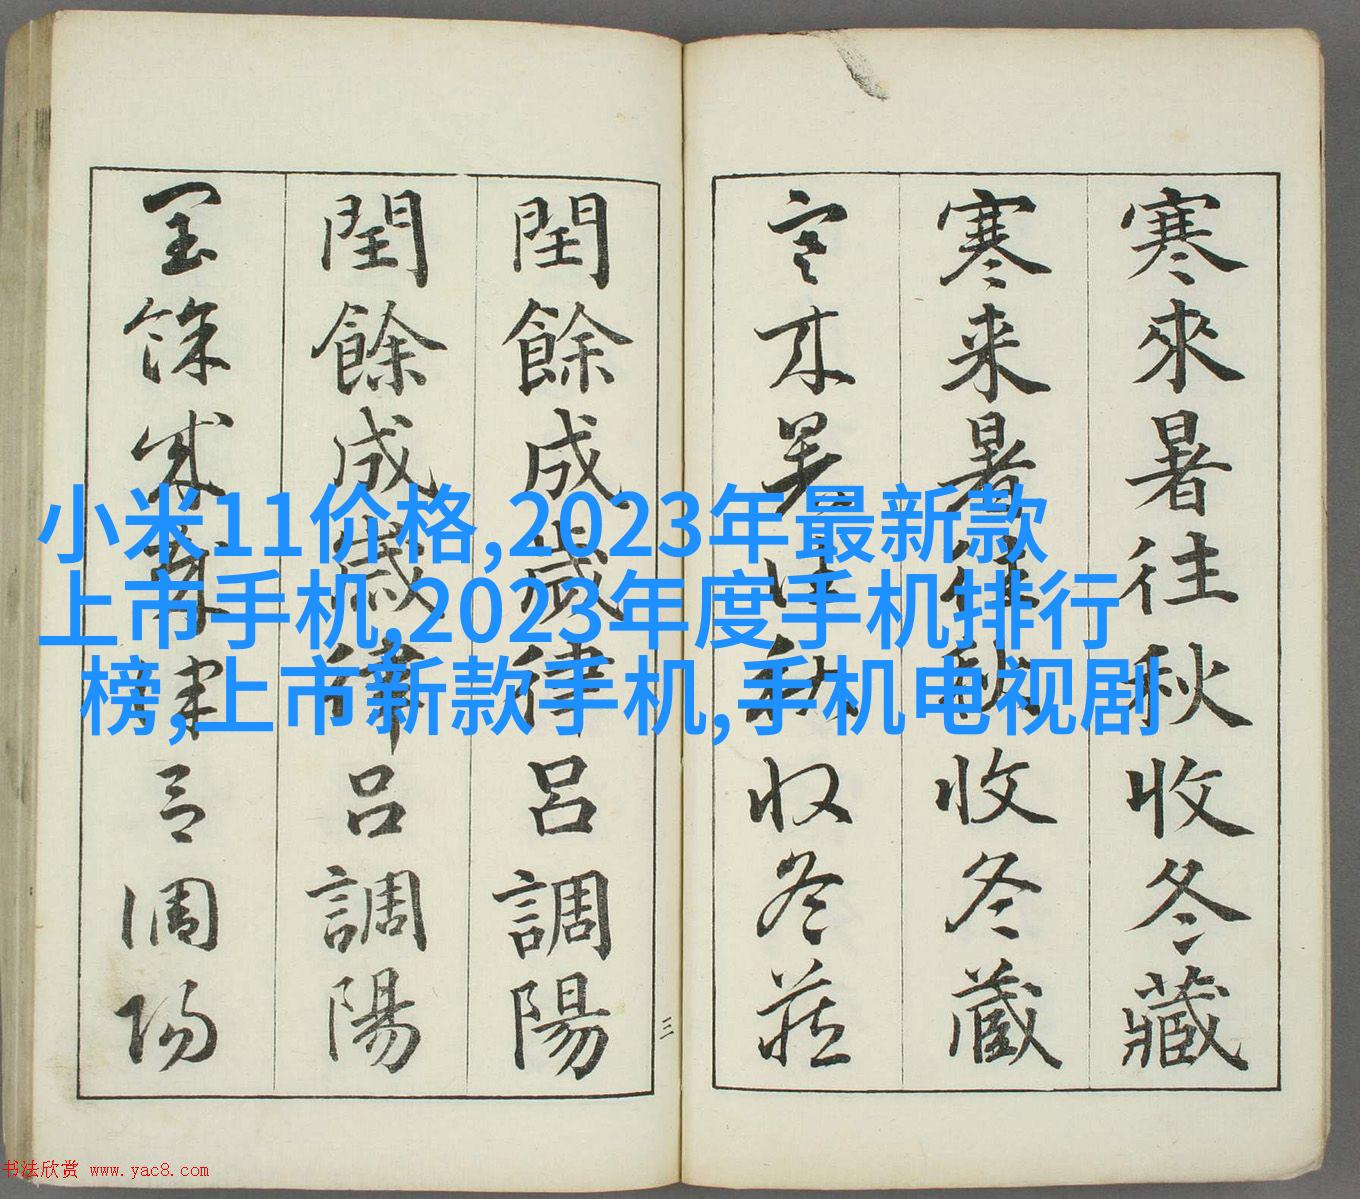 寒來暑往秋收冬藏
寒来暑往秋收冬蔵
寒来暑往秋收冬藏
閏餘成歲律呂調陽
閏餘成歲律呂調陽
閏餘成歲律呂調陽
三
小米11价格,2023年最新款
上市手机,2023年度手机排行
榜,上市新款手机,手机电视剧
书法欣赏 www.yac8.com